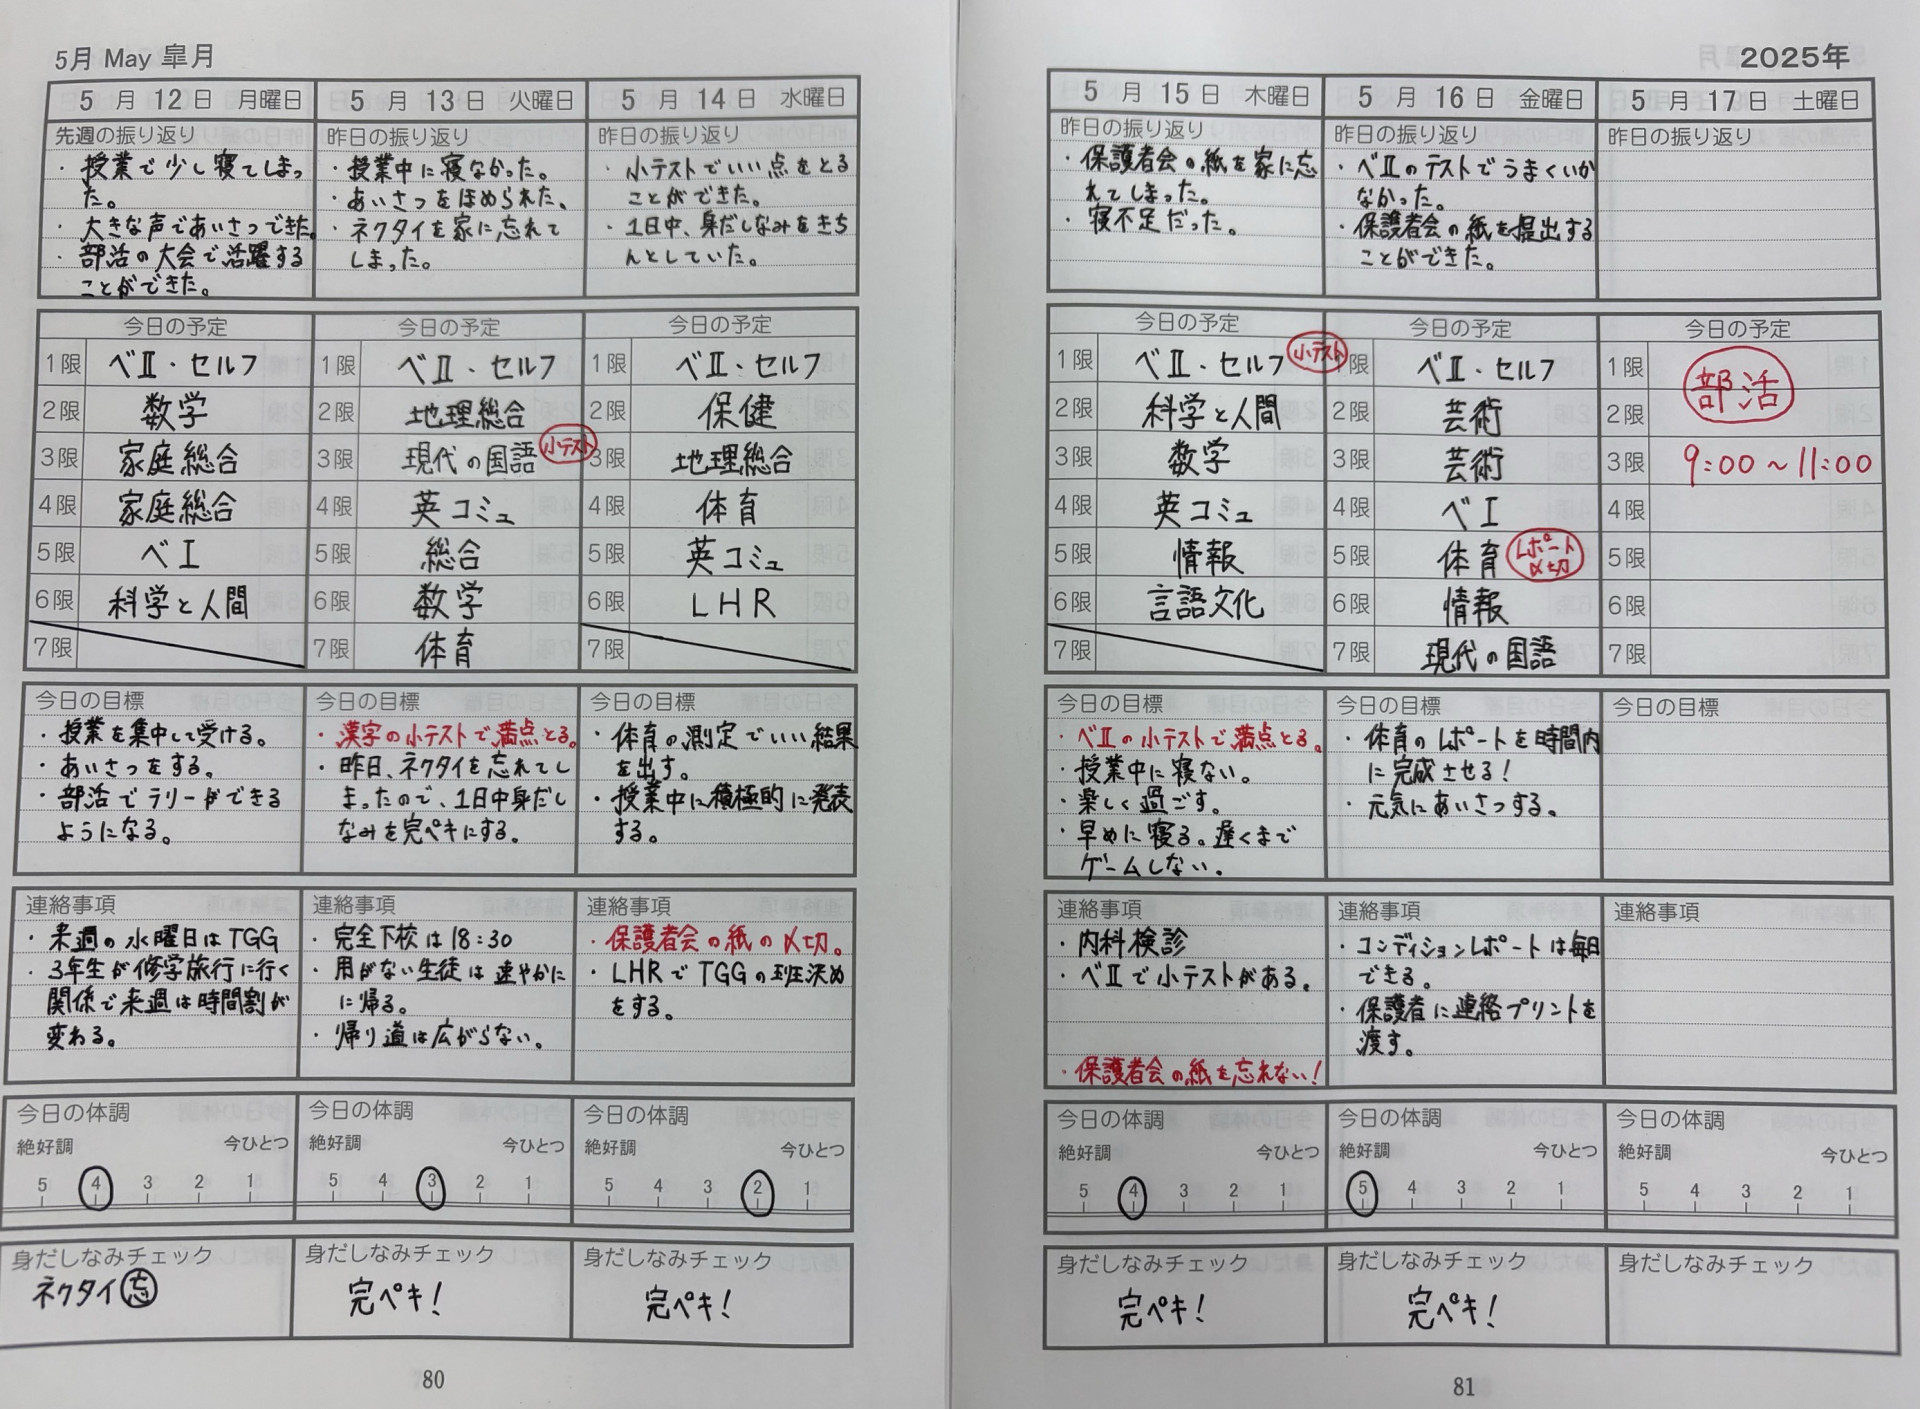 5月 May 皐月
5 月 12 日 月曜日
先週の振り返り
・授業で少し寝てしまっ
た。
・大きな声であいさつできた。
・部活の大会で活躍する
ことができた。
今日の予定
1限 ベⅡ・セルフ
2限 数学
3限 家庭総合
4限 家庭総合
5限 ベⅠ
6限 科学と人間
7限
今日の目標
・授業を集中して受ける。
・あいさつをする。
・部活でラリーができる
ようになる。
連絡事項
・来週の水曜日はTGG
・3年生が修学旅行に行く
関係で来週は時間割が
変わる。
今日の体調
絶好調 今ひとつ
5 4 3 2 1
身だしなみチェック
ネクタイ忘
5 月 13 日 火曜日
昨日の振り返り
・授業中に寝なかった。
・あいさつをほめられた。
・ネクタイを家に忘れて
しまった。
今日の予定
1限 ベⅡ・セルフ
2限 地理総合
3限 現代の国語 小テスト
4限 英コミュ
5限 総合
6限 数学
7限 体育
今日の目標
・漢字の小テストで満点とる。
・昨日、ネクタイを忘れてし
まったので、1日中身だし
なみを完ペキにする。
連絡事項
・完全下校は18:30
・用がない生徒は速やかに
に帰る。
・帰り道は広がらない。
今日の体調
絶好調 今ひとつ
5 4 3 2 1
身だしなみチェック
完ペキ!
5 月 14 日 水曜日
昨日の振り返り
・小テストでいい点をとる
ことができた。
・1日中、身だしなみをきち
んとしていた。
今日の予定
1限 ベⅡ・セルフ
2限 保健
3限 地理総合
4限 体育
5限 英コミュ
6限 LHR
7限
今日の目標
・体育の測定でいい結果
を出す。
・授業中に積極的に発表
する。
連絡事項
・保護者会の紙の〆切。
・LHRでTGGの班決め
をする。
今日の体調
絶好調 今ひとつ
5 4 3 2 1
身だしなみチェック
完ペキ!
80
2025年
5 月 15 日 木曜日
昨日の振り返り
・保護者会の紙を家に忘
れてしまった。
・寝不足だった。
今日の予定
1限 ベⅡ・セルフ 小テスト
2限 科学と人間
3限 数学
4限 英コミュ
5限 情報
6限 言語文化
7限
今日の目標
・ベⅡの小テストで満点とる。
・授業中に寝ない。
・楽しく過ごす。
・早めに寝る。遅くまで
ゲームしない。
連絡事項
・内科検診
・ベⅡで小テストがある。
・保護者会の紙を忘れない!
今日の体調
絶好調 今ひとつ
5 4 3 2 1
身だしなみチェック
完ペキ!
5 月 16 日 金曜日
昨日の振り返り
・ベⅡのテストでうまくいか
なかった。
・保護者会の紙を提出する
ことができた。
今日の予定
限 ベⅡ・セルフ
2限 芸術
3限 芸術
4限 ベⅠ
5限 体育 レポート〆切
6限 情報
7限 現代の国語
今日の目標
・体育のレポートを時間内
に完成させる!
・元気にあいさつする。
連絡事項
・コンディションレポートは毎日
できる。
・保護者に連絡プリントを
渡す。
今日の体調
絶好調 今ひとつ
5 4 3 2 1
身だしなみチェック
完ペキ!
5 月 17 日 土曜日
昨日の振り返り
今日の予定
1限 部活
2限
3限 9:00~11:00
4限
5限
6限
7限
今日の目標
連絡事項
今日の体調
絶好調 今ひとつ
5 4 3 2 1
身だしなみチェック
81